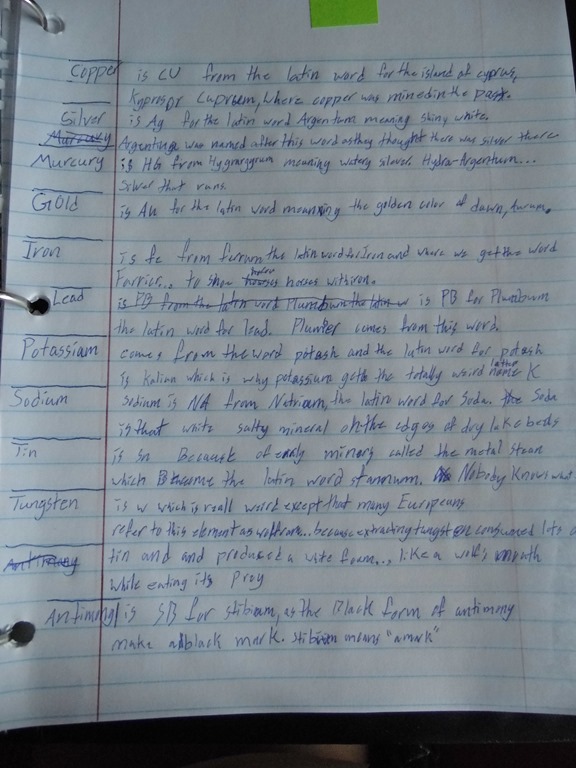 Copper is CU from the latin word for the island of cyprus,
Kypros or Cuprum, where copper was mined in the past.
Silver is Ag for the latin word Argentum meaning shiny white.
Murcury Argentina was named after this word as they thought there was silver there
Murcury is HG from Hygrargyrum meaning watery silaver. Hydra-Argentum...
Silver that runs
Gold is Au for the latin word meaning the golden color of dawn, Auram.
Iron Is fe from ferrum the latin word for Iron and where we get the word
Farrier.. to shoe horses with iron.
Lead is PB from the latin word Plumbum the latin w is PB for Plumbum
the latin word for lead. Plumber comes from this word.
Potassiam comes from the word potash and the latin word for potash
is Kalium which is why potassium gets the totally weird letter K
Sodium Sodium is NA from Natrium, the latin word for Soda. the Soda
is that white salty mineral on the edges of dry lake beds
Tin is Sn Because of early miners called the metal stean
which Become the latin word stannum. Nobody Knows what
Tungsten is w which is reall weird except that many Europeans
refer to this element as wolfram...because extracting tungsten consumed lots a
Antimony tin and and produced a white foam... like a wolf's mouth
while eating its Prey
Antimony is SB for stibium, as the Black form of antimony
make a black mark. stibium means "a mark"